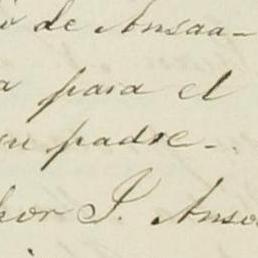 de Ansaa-
para el
su padre.
por J. Anso